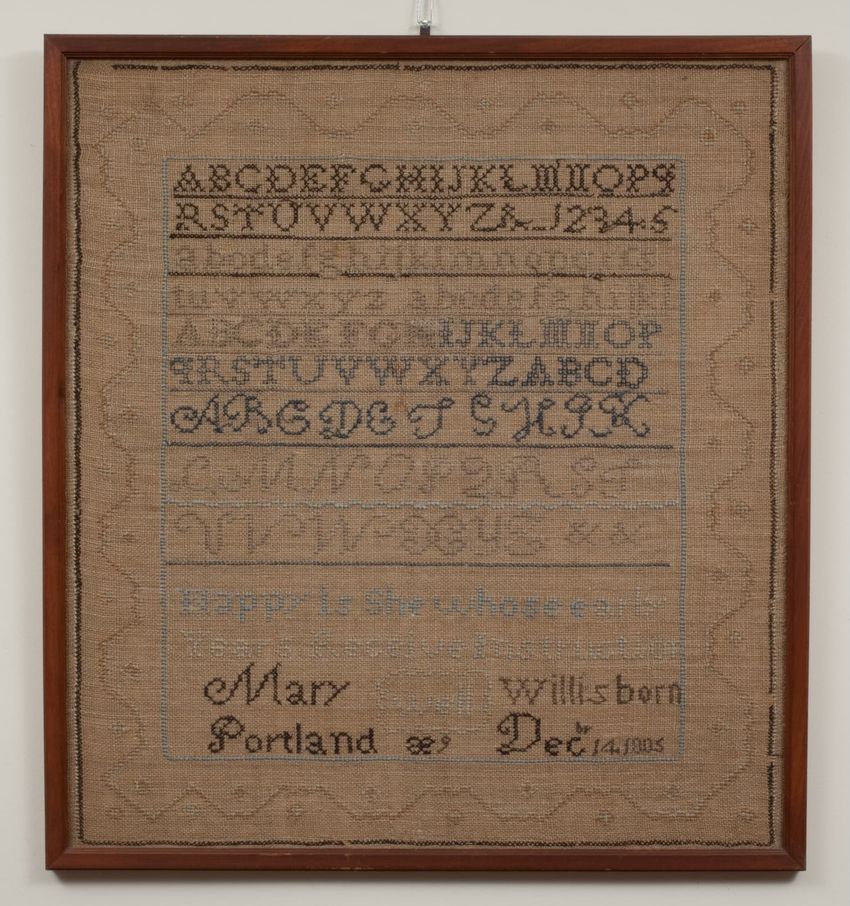 ABCDEFGHIJKLMNOPQ
RSTUVWXYZ& 12345
abcdefghijklmnopqrst
tuvwxyz abcdefghijkl
ABCDEFGHIJKLMNOP
QRSTUVWXYZABCD
ABCDEFGHIK
LMNOPQRST
UVWXYZ &&
Happy Is She whose early
Years Receive Instruction
Mary well Willis born
Portland æ9 Decbr 14.1805